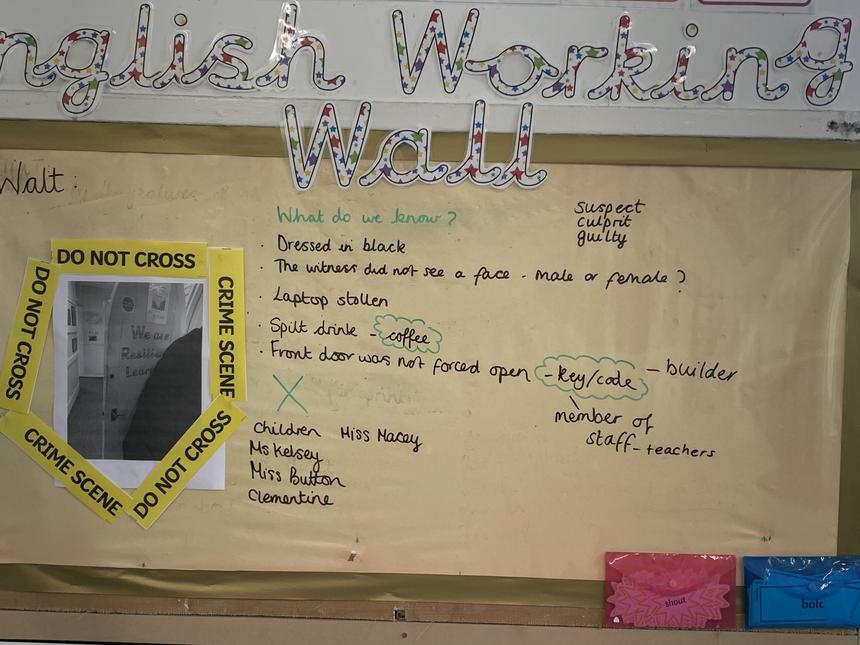 nglish Working
Wall
Walt:
What do we know?
· Dressed in black
· The witness did not see a face - male or female?
· Laptop stolen
· Spilt drink - coffee
· Front door was not forced open - key/code - builder
member of
staff - teachers
suspect
culprit
guilty
X
Children Miss Macey
Ms Kelsey
Miss Button
Clementine
DO NOT CROSS
CRIME SCENE
DO NOT CROSS
CRIME SCENE
DO NOT CROSS
We are
Resilient
Learn
shout
bold